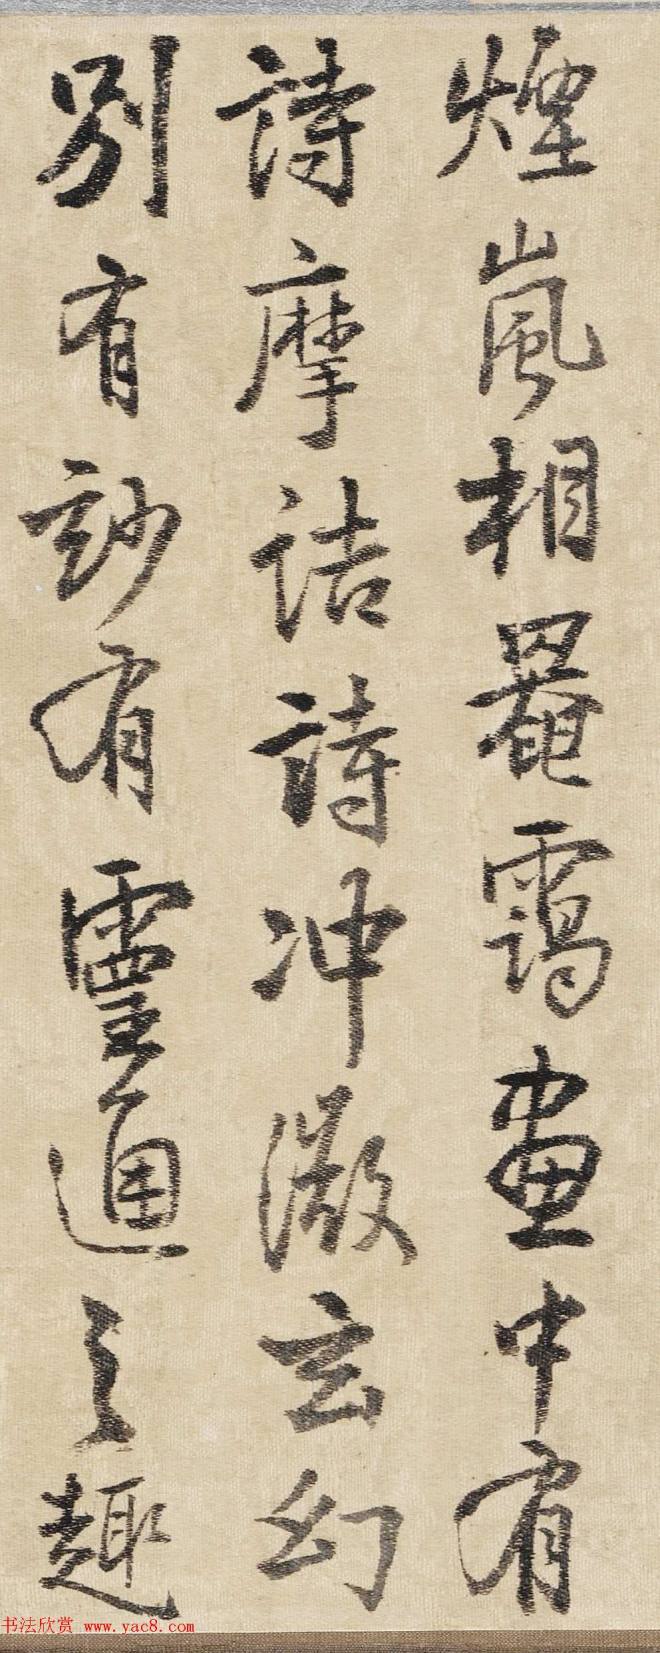 煙嵐相罨靄畫中有
詩摩詰詩冲澂玄幻
別有玅有靈通之趣
书法欣赏 www.yac8.com